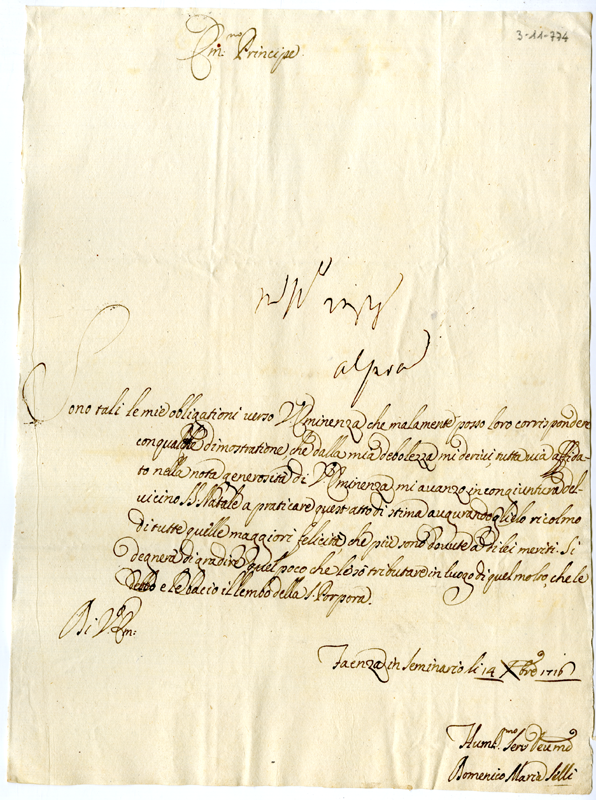 3-11-774
Em:mo Principe.
al prod
Sono tali le mie obligationi verso V. Eminenza che malamente posso loro corrispondere
con qualche dimostratione, che dalla mia debolezza mi derivi, tutta via affida-
to nella nota generosità di V. Eminenza mi avanzo in congiuntura del
vicino S. Natale a praticare quest'atto di stima augurandoglielo ricolmo
di tutte quelle maggiori felicità, che più sono dovute a di lei meriti. Si
degnerà di gradire quel poco che le so tributare in luogo di quel molto, che le
debbo e le bacio il lembo della S. Porpora.
Di V. Em:
Faenza in Seminario li 14 Xbre 1716
Hum:mo Serv
Domenico Maria Silli